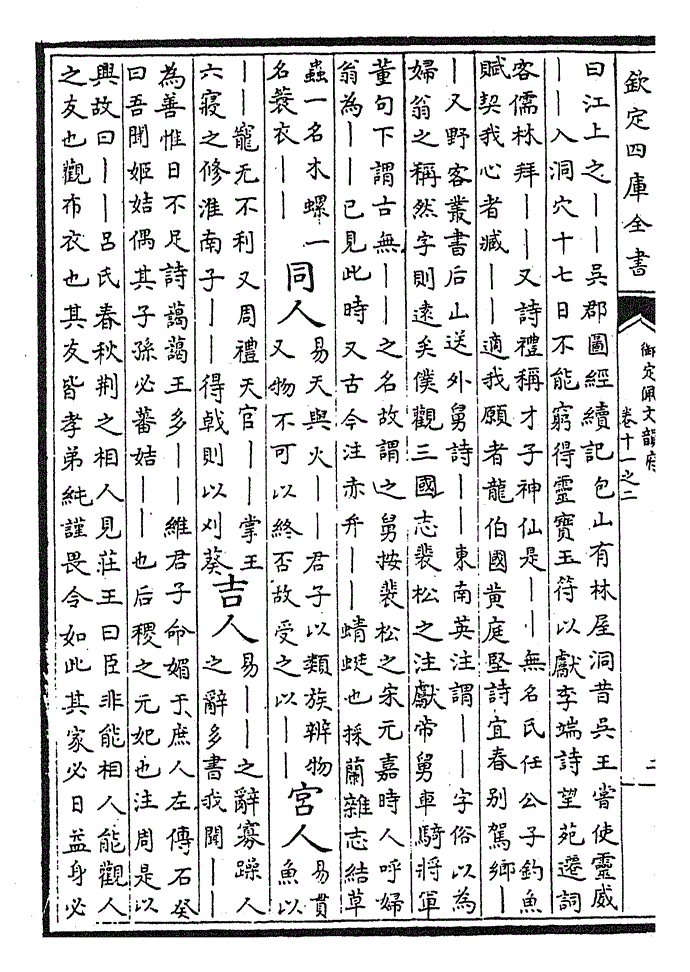 欽定四庫全書
御定佩文韻府
卷十一之二
二
曰江上之｜｜吳郡圖經續記包山有林屋洞昔吳王嘗使靈威
｜｜入洞穴十七日不能窮得靈寳玉符以獻李端詩望苑遷詞
客儒林拜｜｜又詩禮稱才子神仙是｜｜無名氏任公子釣魚
賦契我心者臧｜｜適我願者龍伯國黃庭堅詩宜春别駕鄉｜
｜又野客叢書后山送外舅詩｜｜東南英注謂｜｜字俗以為
婦翁之稱然字則逺矣僕觀三國志裴松之注獻帝舅車騎將軍
董句下謂古無｜｜之名故謂之舅按裴松之宋元嘉時人呼婦
翁為｜｜已見此時又古今注赤弁｜｜蜻蜓也採蘭雜志結草
蟲一名木螺一
名蓑衣｜｜
同人
易天與火｜｜君子以類族辨物
又物不可以終否故受之以｜｜
宮人
易貫
魚以
｜｜寵无不利又周禮天官｜｜掌王
六寢之修淮南子｜｜得戟則以刈葵
吉人
易｜｜之辭寡躁人
之辭多書我聞｜｜
為善惟日不足詩藹藹王多｜｜維君子命媚于庶人左傳石癸
曰吾聞姬姞偶其子孫必蕃姞｜｜也后稷之元妃也注周是以
興故曰｜｜吕氏春秋荆之相人見莊王曰臣非能相人能觀人
之友也觀布衣也其友皆孝弟純謹畏令如此其家必日益身必